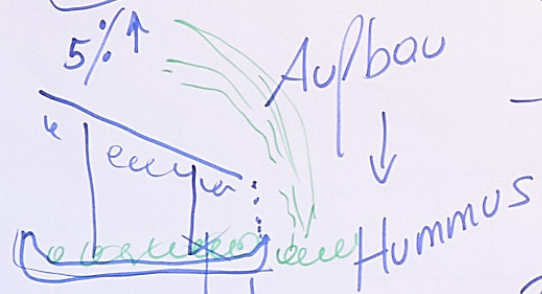 5%↑
Aufbau
↓
Hummus